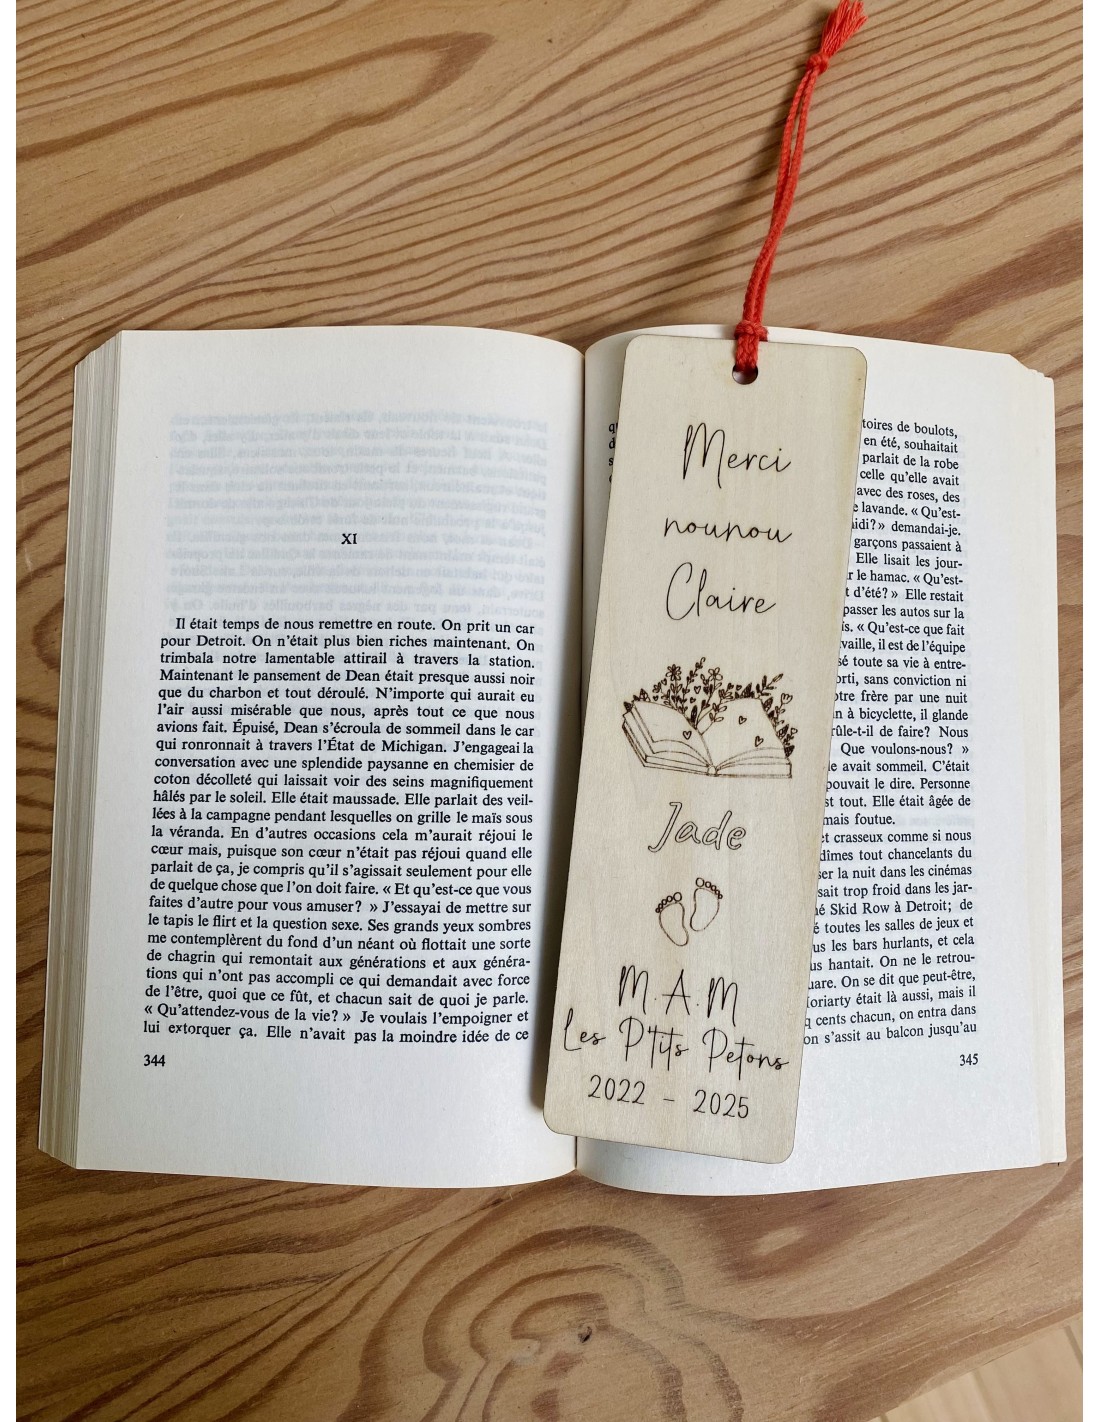 XI
Il était temps de nous remettre en route. On prit un car
pour Detroit. On n'était plus bien riches maintenant. On
trimbala notre lamentable attirail à travers la station.
Maintenant le pansement de Dean était presque aussi noir
que du charbon et tout déroulé. N'importe qui aurait eu
l'air aussi misérable que nous, après tout ce que nous
avions fait. Épuisé, Dean s'écroula de sommeil dans le car
qui ronronnait à travers l'État de Michigan. J'engageai la
conversation avec une splendide paysanne en chemisier de
coton décolleté qui laissait voir des seins magnifiquement
hâlés par le soleil. Elle était maussade. Elle parlait des veil-
lées à la campagne pendant lesquelles on grille le maïs sous
la véranda. En d'autres occasions cela m'aurait réjoui le
cœur mais, puisque son cœur n'était pas réjoui quand elle
parlait de ça, je compris qu'il s'agissait seulement pour elle
de quelque chose que l'on doit faire. « Et qu'est-ce que vous
faites d'autre pour vous amuser? » J'essayai de mettre sur
le tapis le flirt et la question sexe. Ses grands yeux sombres
me contemplèrent du fond d'un néant où flottait une sorte
de chagrin qui remontait aux générations et aux généra-
tions qui n'ont pas accompli ce qui demandait avec force
de l'être, quoi que ce fût, et chacun sait de quoi je parle.
« Qu'attendez-vous de la vie? » Je voulais l'empoigner et
lui extorquer ça. Elle n'avait pas la moindre idée de ce
344
Merci
nounou
Claire
Jade
M.A.M
Les P'tits Petons
2022 - 2025
toires de boulots,
en été, souhaitait
parlait de la robe
celle qu'elle avait
avec des roses, des
lavande. « Qu'est-
demandai-je.
garçons passaient à
Elle lisait les jour-
le hamac. « Qu'est-
d'été? » Elle restait
passer les autos sur la
« Qu'est-ce que fait
il est de l'équipe
toute sa vie à entre-
sans conviction ni
frère par une nuit
à bicyclette, il glande
de faire? Nous
Que voulons-nous? »
avait sommeil. C'était
pouvait le dire. Personne
tout. Elle était âgée de
mais foutue.
et crasseux comme si nous
tout chancelants du
la nuit dans les cinémas
trop froid dans les jar-
Skid Row à Detroit; de
toutes les salles de jeux et
les bars hurlants, et cela
hantait. On ne le retrou-
On se dit que peut-être,
était là aussi, mais il
cents chacun, on entra dans
s'assit au balcon jusqu'au
345